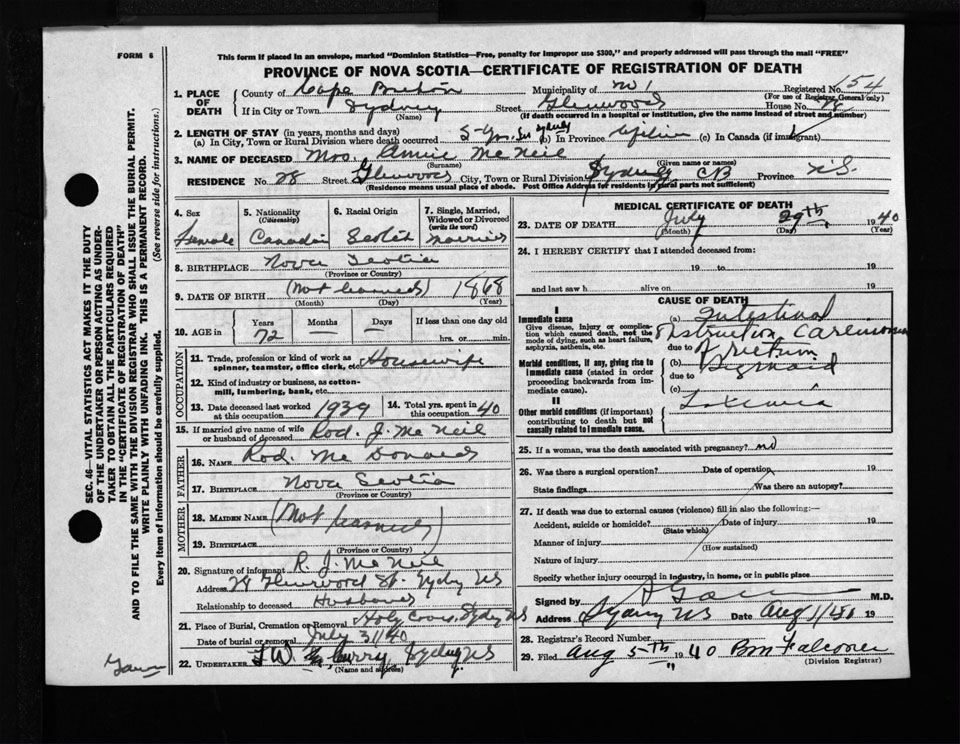 FORM 6
This form if placed in an envelope, marked "Dominion Statistics—Free, penalty for improper use $300," and properly addressed will pass through the mail "FREE"
PROVINCE OF NOVA SCOTIA—CERTIFICATE OF REGISTRATION OF DEATH
1. PLACE OF DEATH
County of Cape Breton Municipality of Registered No. 154
(For use of Registrar General only)
If in City or Town Sydney Street Glenwood House No. 28
(Name) (If death occurred in a hospital or institution, give the name instead of street and number)
2. LENGTH OF STAY (in years, months and days)
(a) In City, Town or Rural Division where death occurred 5 Yrs. in Sydney (b) In Province Lifetime (c) In Canada (if immigrant)
3. NAME OF DECEASED Mrs. Annie McNeil
(Surname) (Given name or names)
RESIDENCE No. 28 Street Glenwood City, Town or Rural Division Sydney CB Province N.S.
(Residence means usual place of abode. Post Office Address for residents in rural parts not sufficient)
4. Sex Female
5. Nationality (Citizenship) Canadian
6. Racial Origin Scotch
7. Single, Married, Widowed or Divorced (write the word) Married
8. BIRTHPLACE Nova Scotia
(Province or Country)
9. DATE OF BIRTH (Not learned) 1868
(Month) (Day) (Year)
10. AGE in Years Months Days If less than one day old
72 — — hrs. or min.
OCCUPATION
11. Trade, profession or kind of work as spinner, teamster, office clerk, etc. Housewife
12. Kind of industry or business, as cotton-mill, lumbering, bank, etc.
13. Date deceased last worked at this occupation 1939
14. Total yrs. spent in this occupation 40
15. If married give name of wife or husband of deceased Rod. J. McNeil
FATHER
16. NAME Rod. McDonald
17. BIRTHPLACE Nova Scotia
(Province or Country)
MOTHER
18. MAIDEN NAME (Not learned)
19. BIRTHPLACE
(Province or Country)
20. Signature of informant R. J. McNeil
Address 28 Glenwood St. Sydney NS
Relationship to deceased Husband
21. Place of Burial, Cremation or Removal Holy Cross, Sydney NS
Date of burial or removal July 31/40
22. UNDERTAKER T W Curry Sydney NS
(Name and address)
MEDICAL CERTIFICATE OF DEATH
23. DATE OF DEATH July 29th 1940
(Month) (Day) (Year)
24. I HEREBY CERTIFY that I attended deceased from:
19 to 19
and last saw h alive on 19
CAUSE OF DEATH
I
Immediate cause
Give disease, injury or complication which caused death, not the mode of dying, such as heart failure, asphyxia, asthenia, etc.
(a) Intestinal
Obstruction Carcinoma
due to
Morbid conditions, if any, giving rise to immediate cause (stated in order proceeding backwards from immediate cause).
(b) Rectum
Sigmoid
due to
(c)
II
Other morbid conditions (if important) contributing to death but not causally related to immediate cause.
Toxemia
25. If a woman, was the death associated with pregnancy? no
26. Was there a surgical operation? Date of operation 19
State findings Was there an autopsy?
27. If death was due to external causes (violence) fill in also the following:—
Accident, suicide or homicide? Date of injury 19
(State which)
Manner of injury
(How sustained)
Nature of injury
Specify whether injury occurred in industry, in home, or in public place
Signed by M.D.
Address Sydney NS Date Aug 1/40 19
28. Registrar's Record Number
29. Filed Aug 5th 1940 BM Falconer
(Division Registrar)
SEC. 46—VITAL STATISTICS ACT MAKES IT THE DUTY
OF THE UNDERTAKER OR PERSON ACTING AS UNDER-
TAKER TO OBTAIN ALL THE PARTICULARS REQUIRED
IN THE "CERTIFICATE OF REGISTRATION OF DEATH"
AND TO FILE THE SAME WITH THE DIVISION REGISTRAR WHO SHALL ISSUE THE BURIAL PERMIT.
WRITE PLAINLY WITH UNFADING INK. THIS IS A PERMANENT RECORD.
Every item of information should be carefully supplied. (See reverse side for instructions.)